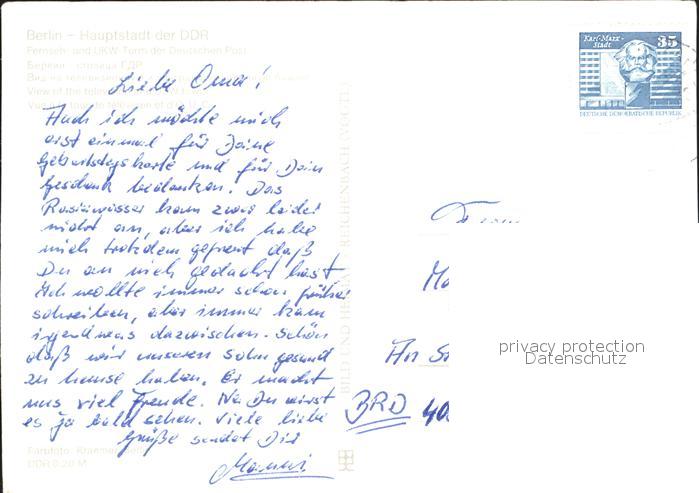 Berlin – Hauptstadt der DDR
Fernseh- und UKW-Turm der Deutschen Post
Берлин – столица ГДР
View of the tele
Liebe Oma!
Auch ich möchte mich
erst einmal für Deine
Geburtstagskarte und für Dein
Geschenk bedanken. Das
Rasierwasser kam zwar leider
nicht an, aber ich habe
mich trotzdem gefreut daß
Du an mich gedacht hast
Ich wollte immer schon früher
schreiben, aber immer kam
irgendwas dazwischen. Schön
daß wir unseren Sohn gesund
zu hause haben. Er macht
uns viel Freude. Na Du wirst
es ja bald sehen. Viele liebe
Grüße sendet Dir
Farbfoto: Kraemer
DDR 0,20 M
BILD UND HEIMAT REICHENBACH (VOGTL)
Karl-Marx-Stadt 35
DEUTSCHE DEMOKRATISCHE REPUBLIK
BRD 40
privacy protection
Datenschutz